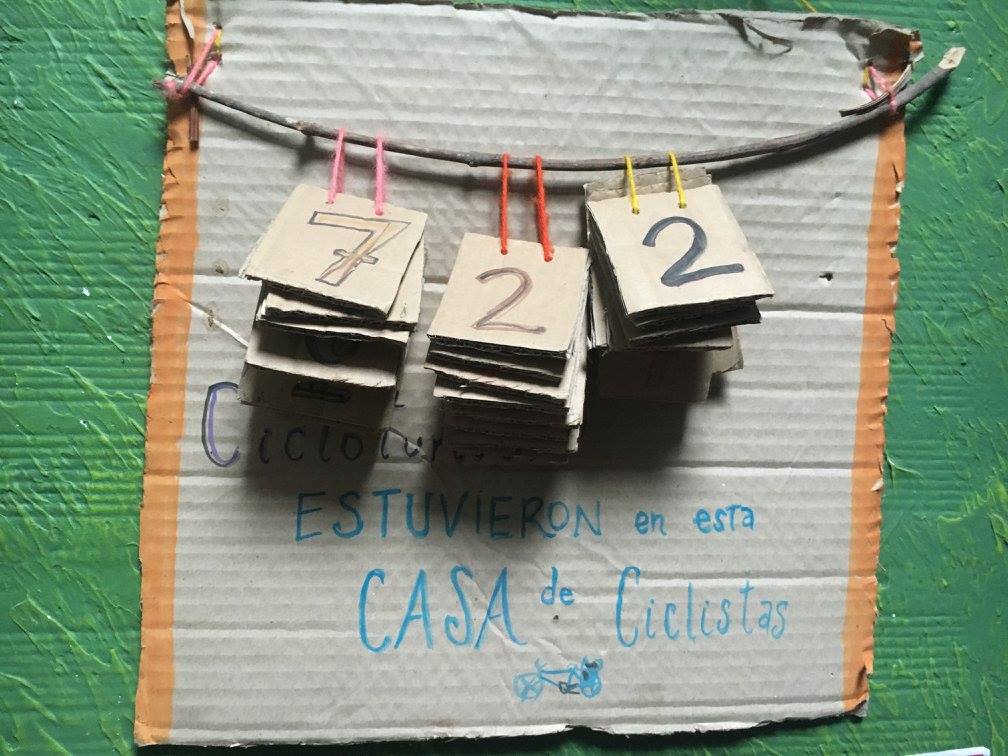 7 2 2
ESTUVIERON en esta
CASA de Ciclistas